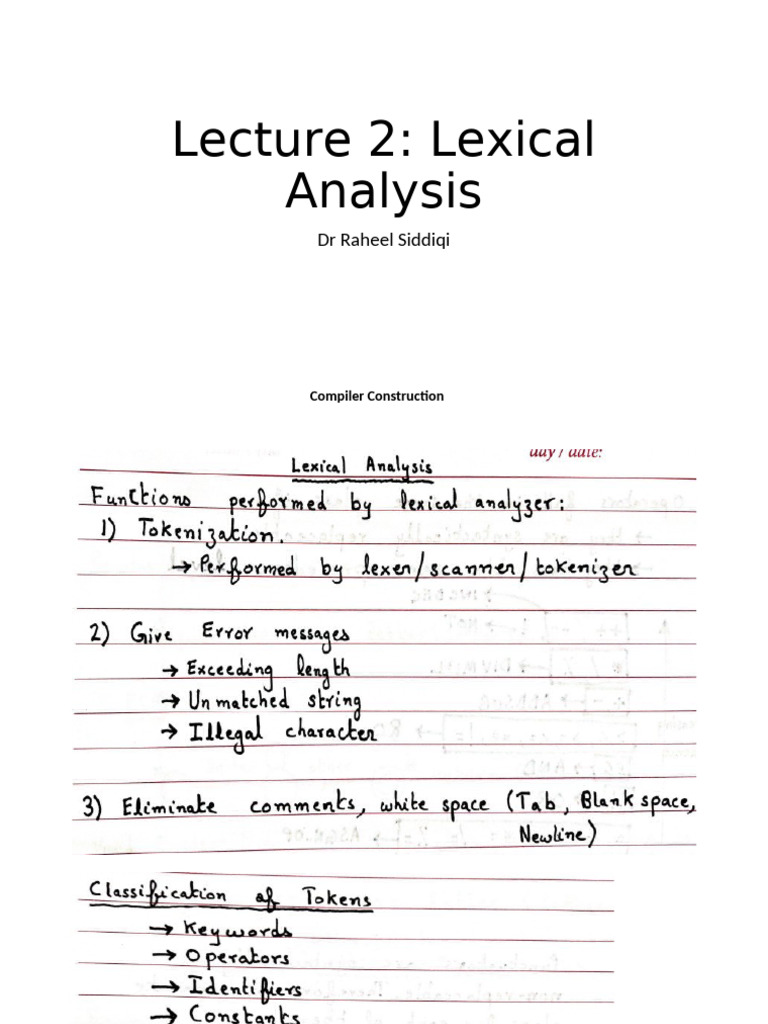 Lecture 2: Lexical
Analysis
Dr Raheel Siddiqi
Compiler Construction
day / date:
Lexical Analysis
Functions performed by lexical analyzer:
1) Tokenization.
→ Performed by lexer/scanner/tokenizer
2) Give Error messages
→ Exceeding length
→ Unmatched string
→ Illegal character
3) Eliminate comments, white space (Tab, Blank space,
Newline)
Classification of Tokens
→ Keywords
→ Operators
→ Identifiers
→ Constants